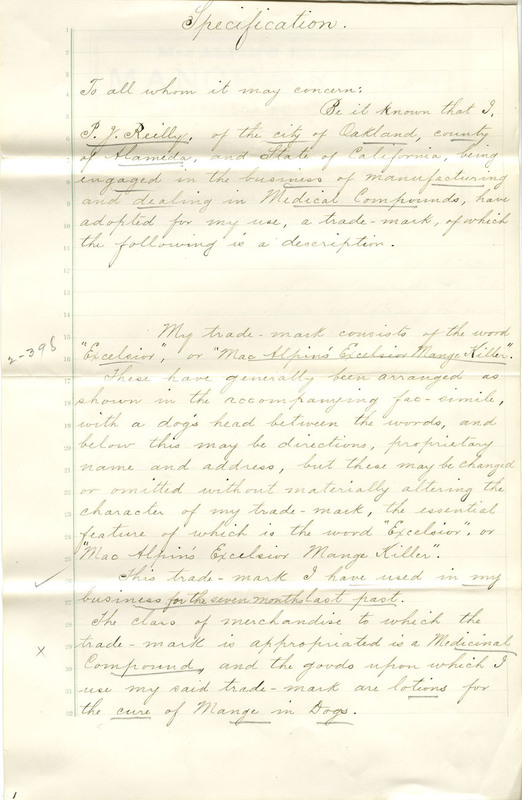 Specification.
To all whom it may concern:
Be it known that I,
P. J. Reilly, of the city of Oakland, county
of Alameda, and State of California, being
engaged in the business of manufacturing
and dealing in Medical Compounds, have
adopted for my use, a trade-mark, of which
the following is a description.
My trade-mark consists of the word
"Excelsior", or "Mac Alpin's Excelsior Mange Killer".
These have generally been arranged as
shown in the accompanying fac-simile,
with a dog's head between the words, and
below this may be directions, proprietary
name and address, but these may be changed
or omitted without materially altering the
character of my trade-mark, the essential
feature of which is the word "Excelsior", or
"Mac Alpin's Excelsior Mange Killer".
This trade-mark I have used in my
business for the seven months last past.
The class of merchandise to which the
trade-mark is appropriated is a Medicinal
Compound, and the goods upon which I
use my said trade-mark are lotions for
the cure of Mange in Dogs.